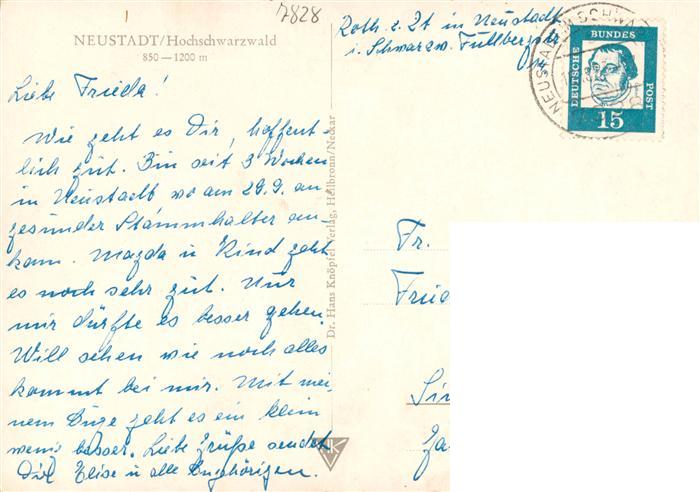 7828
NEUSTADT/Hochschwarzwald
850 — 1200 m
Roth z. Zt in Neustadt
i. Schwarzw.
DEUTSCHE BUNDES POST
15
Liebe Frieda!
Wie geht es Dir, hoffent-
lich gut. Bin seit 3 Wochen
in Neustadt wo am 29.9. ein
gesunder Stammhalter an-
kam. Magda u Kind geht
es noch sehr gut. Nur
mir dürfte es besser gehen.
Will sehen wie noch alles
kommt bei mir. Mit mei-
nem Auge geht es ein klein
wenig besser. Liebe Grüße sendet
Dir Elise u alle Angehörigen.
Dr. Hans Knöpfel Verlag, Heilbronn/Neckar
Fr.
Fried
Sin